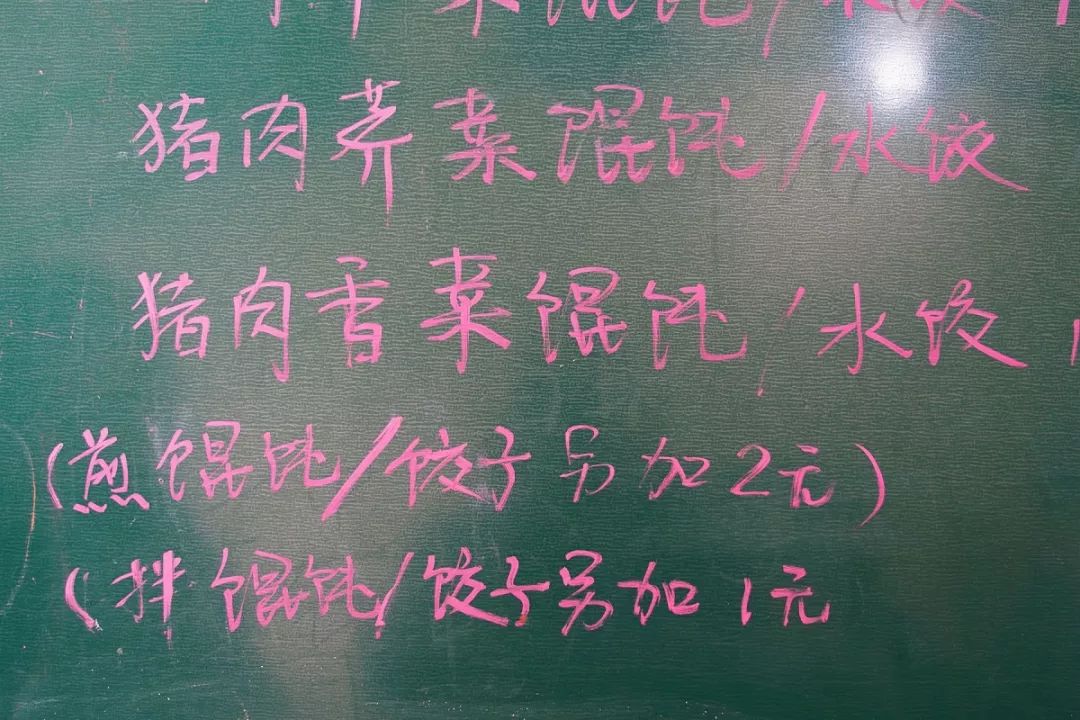 菜馄饨/水饺
猪肉荠菜馄饨/水饺
猪肉香菜馄饨/水饺
(煎馄饨/饺子另加2元)
(拌馄饨/饺子另加1元